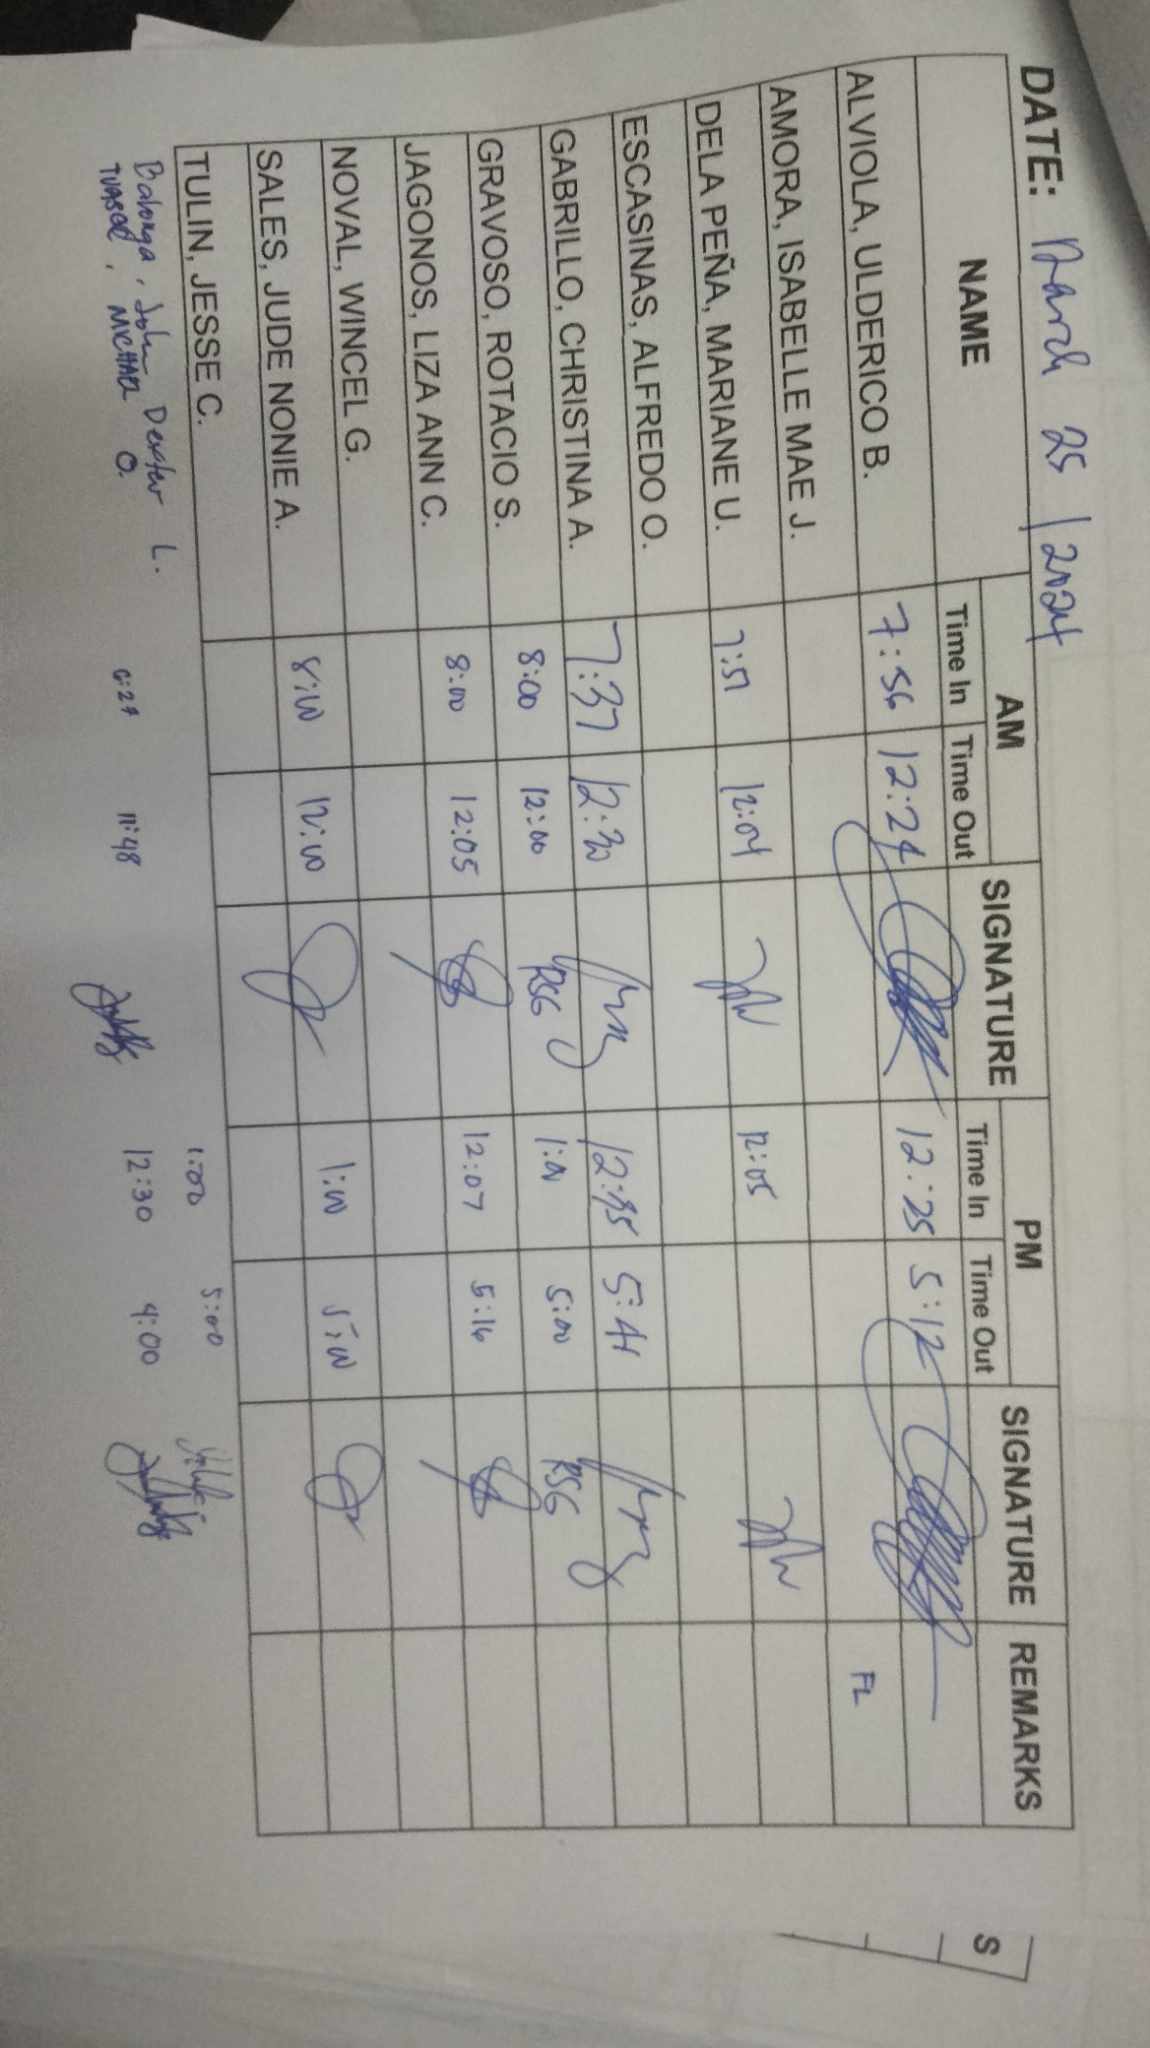 DATE: March 25, 2024
NAME AM SIGNATURE PM SIGNATURE REMARKS
Time In Time Out Time In Time Out
ALVIOLA, ULDERICO B. 7:56 12:24 12:25 5:12
AMORA, ISABELLE MAE J. FL
DELA PEÑA, MARIANE U. 7:51 12:04 12:05
ESCASINAS, ALFREDO O.
GABRILLO, CHRISTINA A. 7:37 12:30 12:35 5:41
GRAVOSO, ROTACIO S. 8:00 12:00 RSG 1:00 5:00 RSG
JAGONOS, LIZA ANN C. 8:00 12:05 12:07 5:16
NOVAL, WINCEL G.
SALES, JUDE NONIE A. 8:00 12:00 1:00 5:00
TULIN, JESSE C.
Balonga, John Dexter L. 1:00 5:00
MICHAEL O. 6:27 11:48 12:30 4:00
S